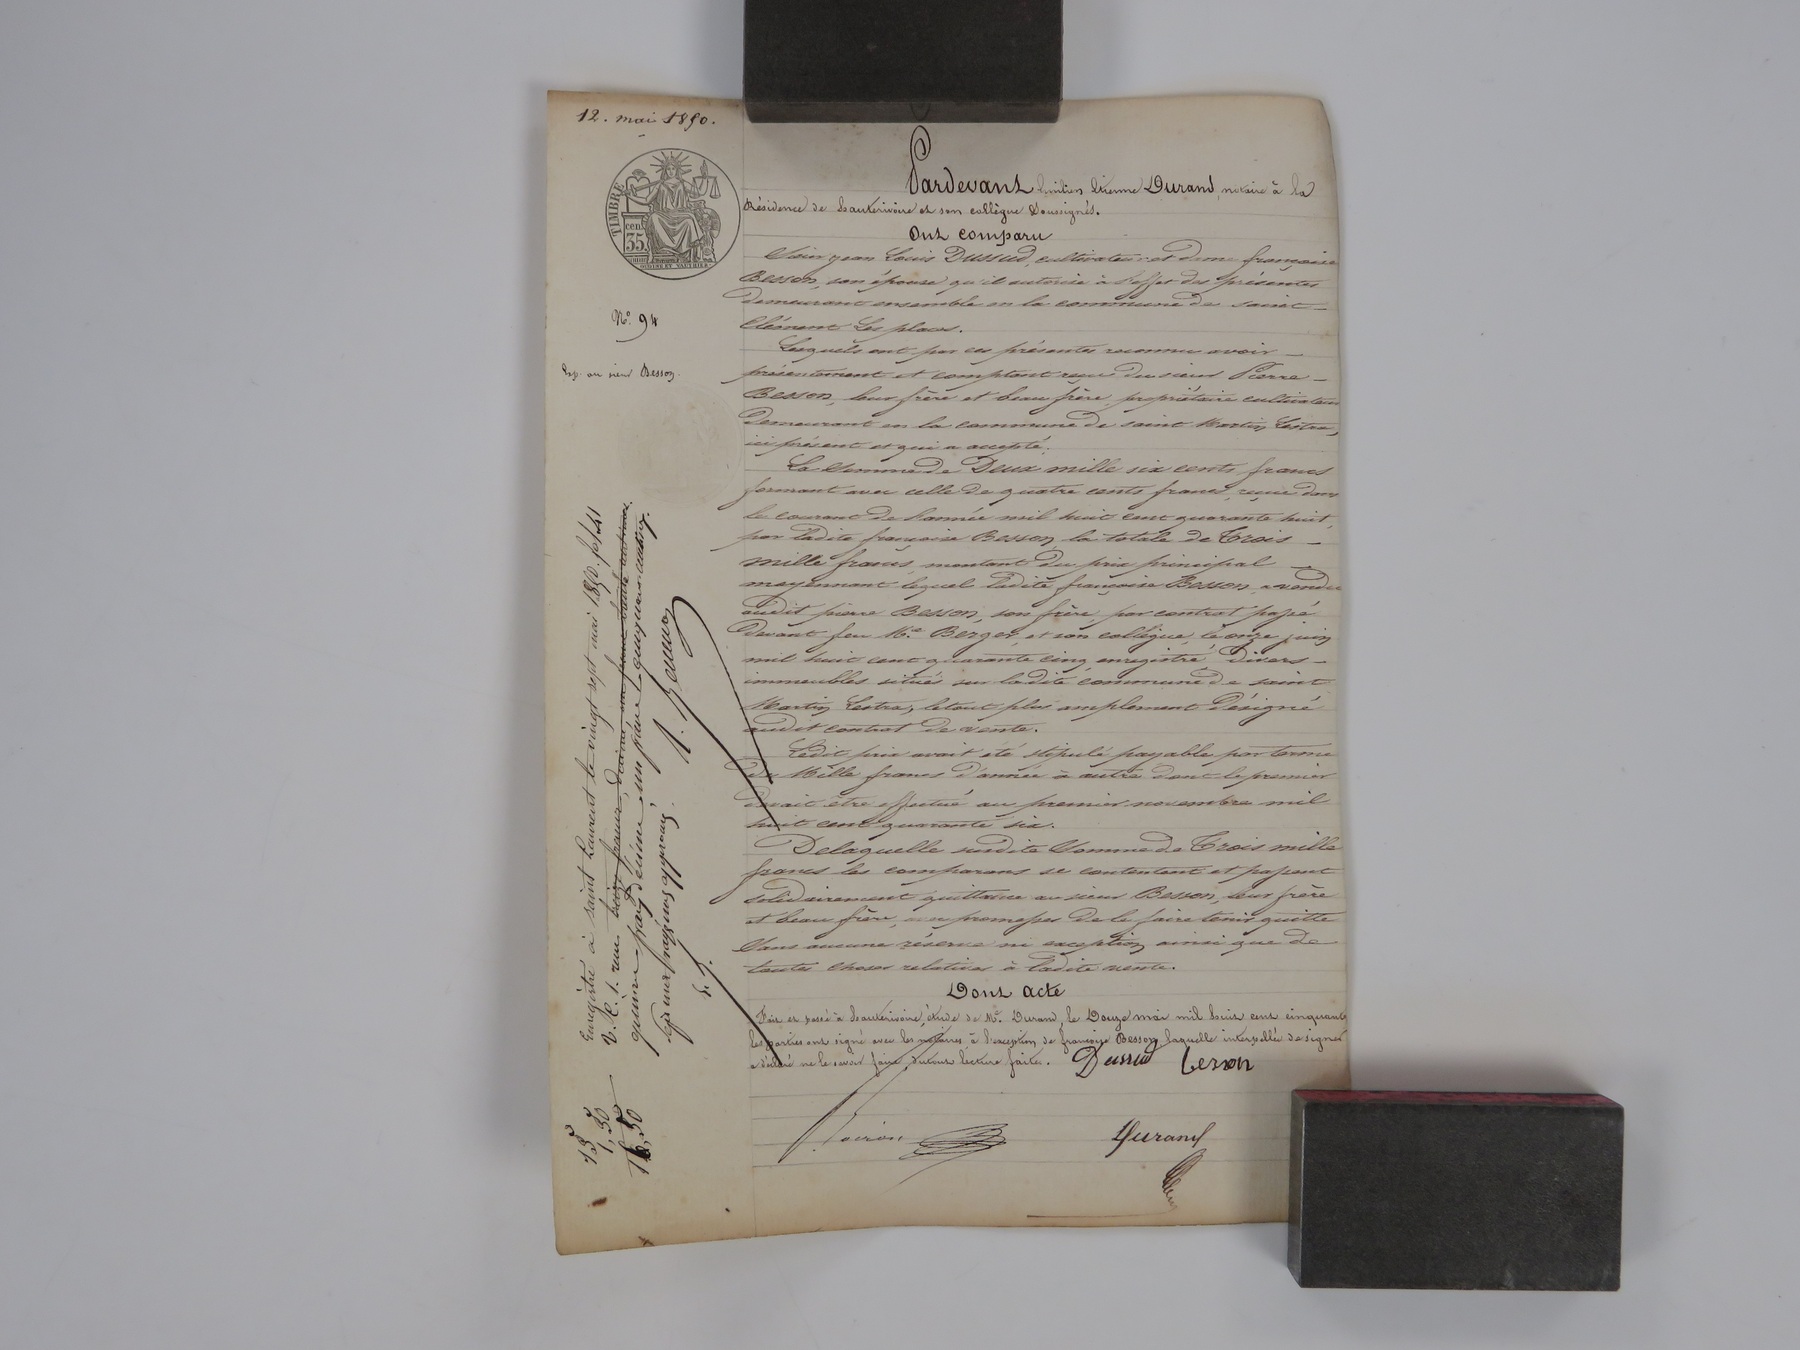 12. mai 1850.
TIMBRE
cent.
35
Nº 94
Exp. au sieur Besson.
Pardevant Emilien Etienne Durand, notaire à la
Résidence de hauterivoire et son collègue Soussignés.
Ont comparu
Sieur jean Louis Dussud, cultivateur et dame françoise
Besson, son épouse qu'il autorise à l'effet des présentes
demeurant ensemble en la commune de saint
Clément Les places.
Lesquels ont par ces présentes reconnu avoir
présentement et comptant reçu du sieur Pierre
Besson, leur frère et beau frère, propriétaire cultivateur
demeurant en la commune de saint Martin Lestra,
ici présent et qui a accepté.
La somme de Deux mille six cents francs
formant avec celle de quatre cents francs, reçue dans
le courant de l'année mil huit cent quarante huit,
par ladite françoise Besson, la totale de Trois
mille francs, montant du prix principal
moyennant lequel ladite françoise Besson, a vendu
audit pierre Besson, son frère, par contrat passé
devant feu Me Berger, et son collègue, le onze juin
mil huit cent quarante cinq, enregistré, divers
immeubles situés sur ladite commune de saint
Martin Lestra, le tout plus amplement désigné
audit contrat de vente.
Ledit prix avait été stipulé payable par terme
de Mille francs d'année à autre dont le premier
devait être effectué au premier novembre mil
huit cent quarante six.
Delaquelle susdite Somme de Trois mille
francs les comparans se contentent et passent
solidairement quittance au sieur Besson, leur frère
et beau frère, avec promesses de le faire tenir quitte
Sans aucune réserve ni exception, ainsi que de
toutes choses relatives à ladite vente.
Dont acte
Fait et passé à hauterivoire, étude de Me Durand, le Douze mai mil huit cent cinquante
les parties ont signé avec les notaires, à l'exception de françoise Besson, laquelle interpellée de signer
a déclaré ne le savoir faire, du tout lecture faite. Dussud beson
Durand
Enregistré à saint Laurent le vingt sept mai 1850. fo 41
V. C. 1. reçu
quinze francs, décime un franc cinquante centimes.
13
1,50
16,50